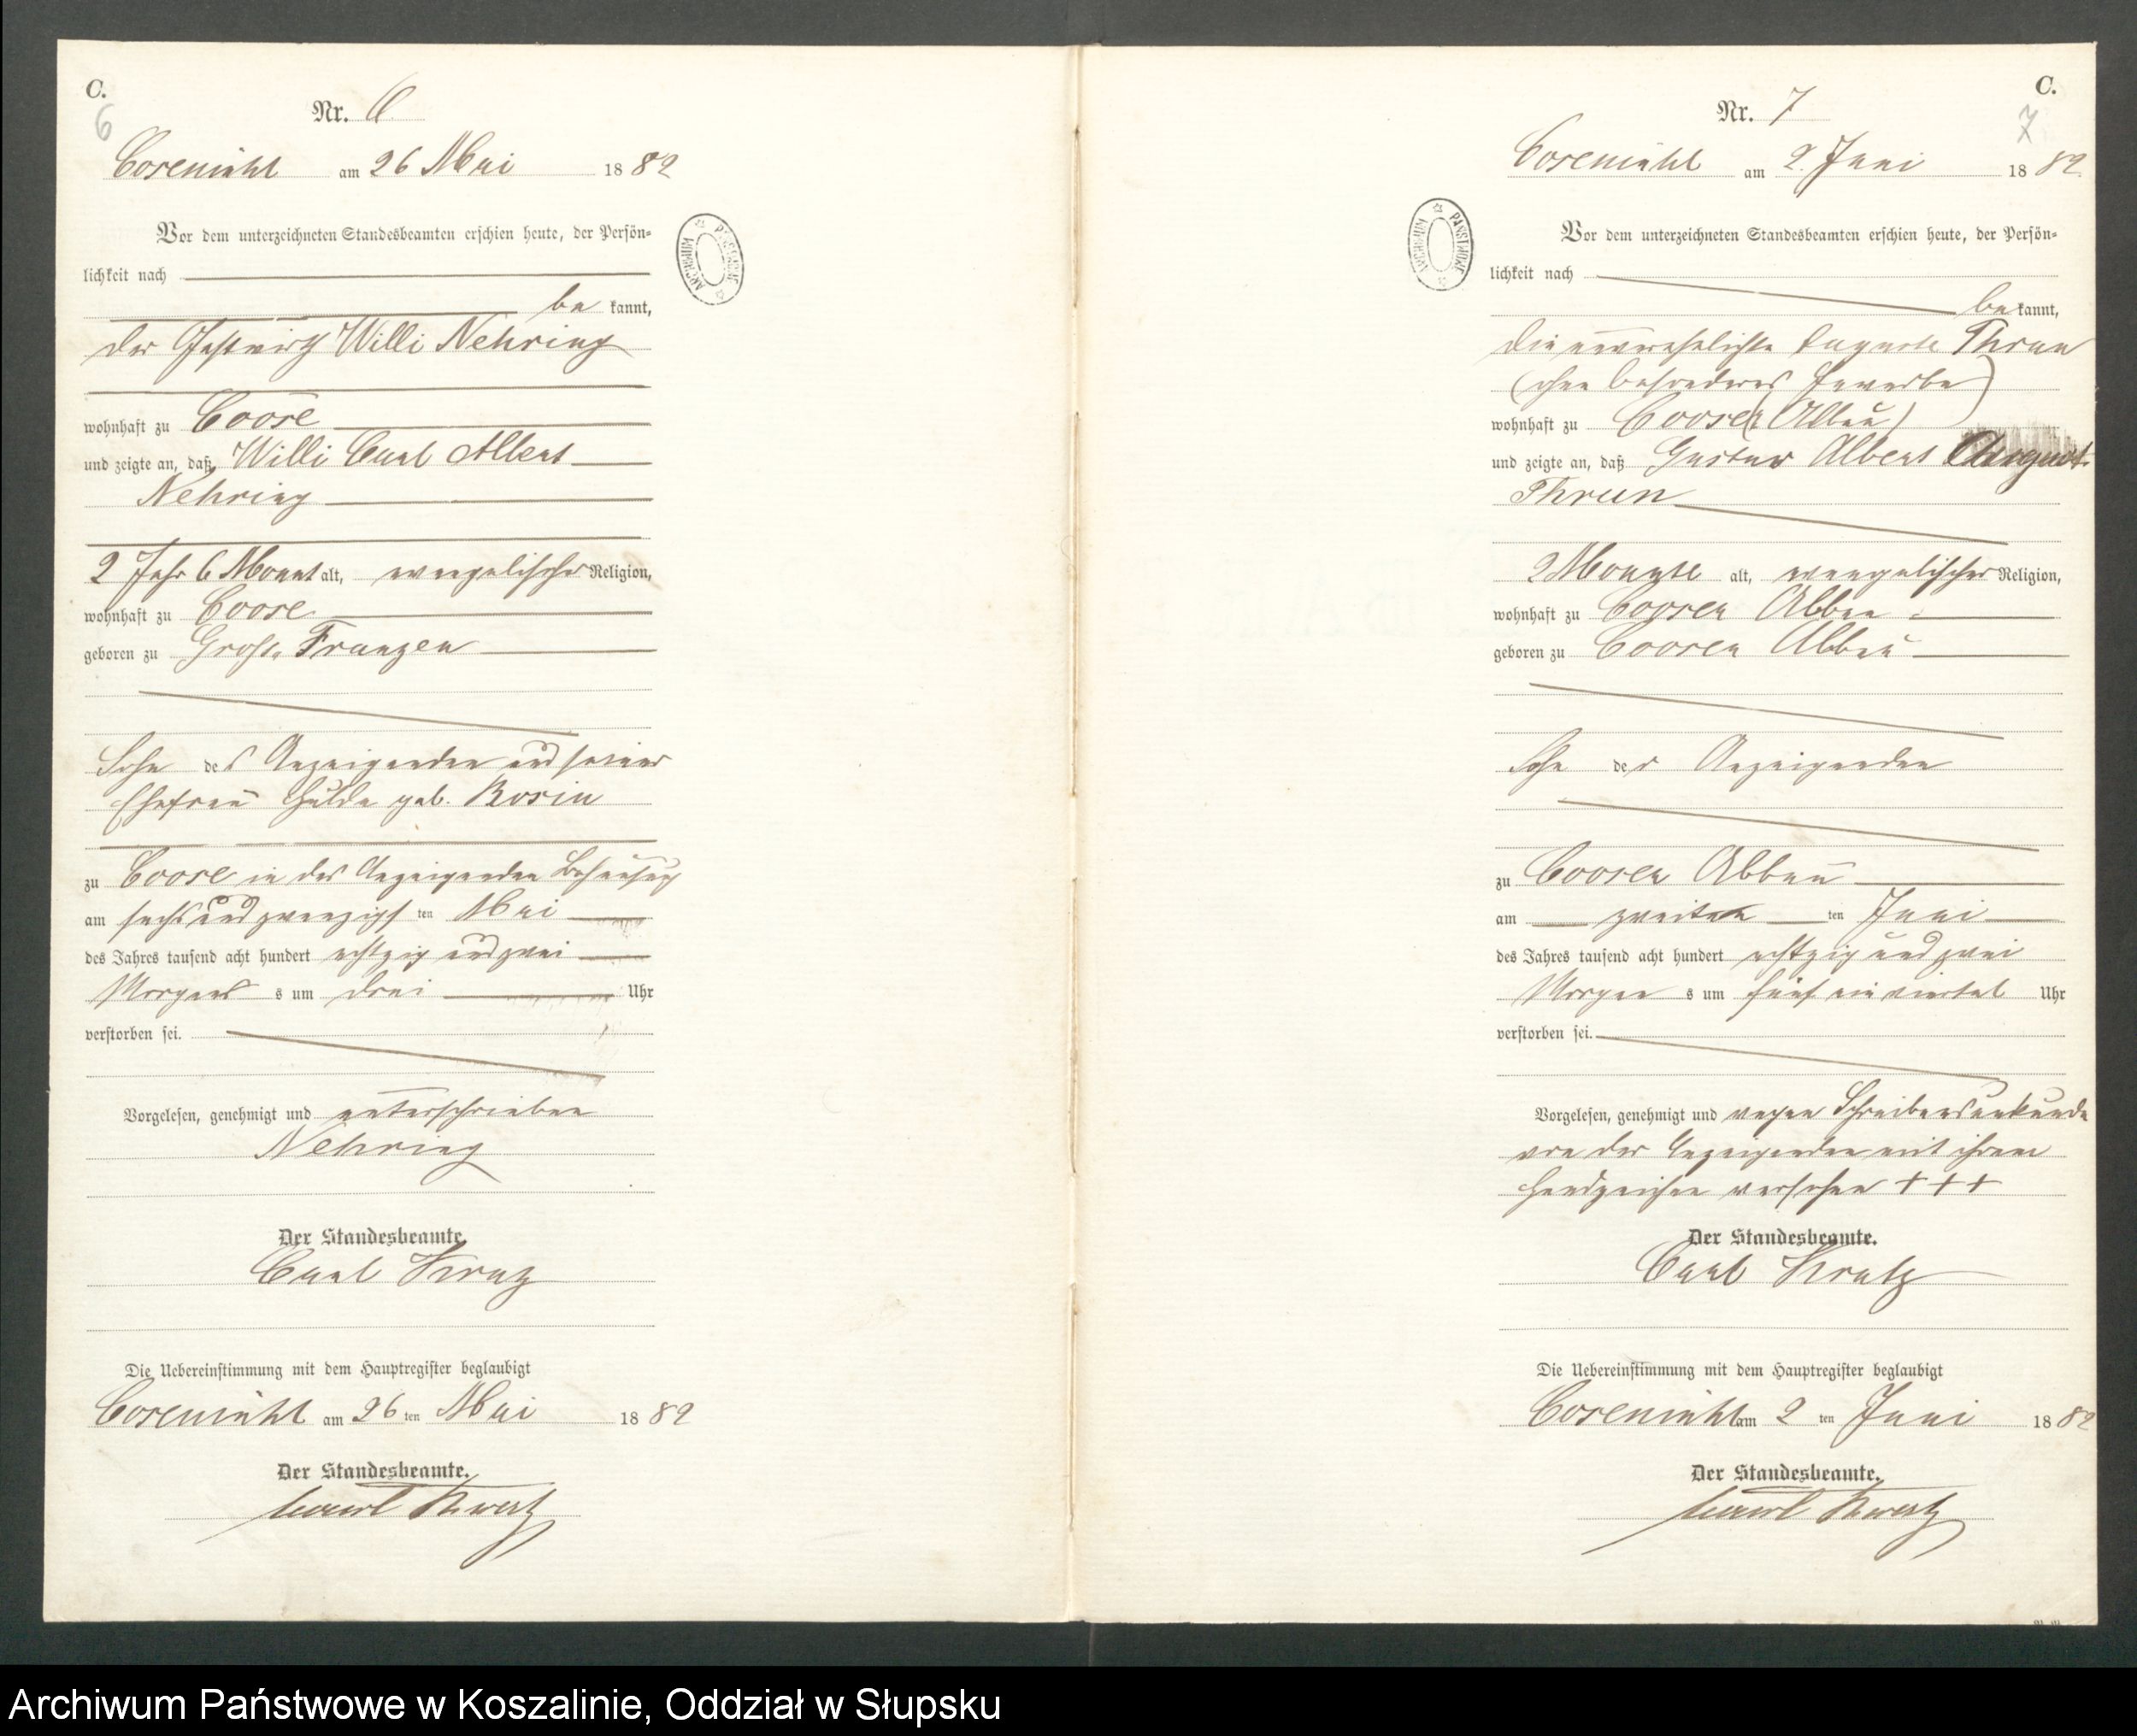 C.
6
Nr. 6
Cosemühl am 26 Mai 1882
Vor dem unterzeichneten Standesbeamten erschien heute, der Persön-
lichkeit nach
be kannt,
der Gastwirth Willi Nehring
wohnhaft zu Coose
und zeigte an, daß Willi Carl Albert
Nehring
2 Jahr 6 Monat alt, evangelischer Religion,
wohnhaft zu Coose
geboren zu Groß Franzen
Sohn des Anzeigenden und seiner
Ehefrau Hulda geb. Rosin
zu Coose in des Anzeigenden Behausung
am sechs und zwanzigsten Mai
des Jahres tausend acht hundert achtzig und zwei
Morgens um drei Uhr
verstorben sei.
Vorgelesen, genehmigt und unterschrieben
Nehring
Der Standesbeamte.
Carl Kratz
Die Uebereinstimmung mit dem Hauptregister beglaubigt
Cosemühl am 26 ten Mai 1882
Der Standesbeamte.
Carl Kratz
ARCHIWUM PAŃSTWOWE
C.
7
Nr. 7
Cosemühl am 2. Juni 1882
Vor dem unterzeichneten Standesbeamten erschien heute, der Persön-
lichkeit nach
be kannt,
die unverehelichte Auguste Thrun
(ohne besonderes Gewerbe)
wohnhaft zu Coosen (Abbau)
und zeigte an, daß Gustav Albert August
Thrun
2 Monate alt, evangelischer Religion,
wohnhaft zu Coosen Abbau
geboren zu Coosen Abbau
Sohn der Anzeigenden
zu Coosen Abbau
am zweiten ten Juni
des Jahres tausend acht hundert achtzig und zwei
Morgen s um fünf ein viertel Uhr
verstorben sei.
Vorgelesen, genehmigt und wegen Schreibensunkunde
von der Anzeigenden mit ihrem
Handzeichen versehen +++
Der Standesbeamte.
Carl Kratz
Die Uebereinstimmung mit dem Hauptregister beglaubigt
Cosemühl am 2 ten Juni 1882
Der Standesbeamte.
Carl Kratz
ARCHIWUM PAŃSTWOWE
Archiwum Państwowe w Koszalinie, Oddział w Słupsku